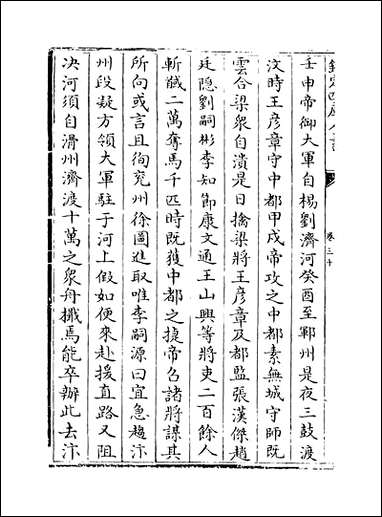 欽定四庫全書
卷三十
壬申帝御大軍自楊劉濟河癸酉至鄆州是夜三鼓渡
汶時王彦章守中都甲戌帝攻之中都素無城守師既
雲合梁衆自潰是日擒梁將王彦章及都監張漢傑趙
廷隱劉嗣彬李知節康文通王山興等將吏二百餘人
斬馘二萬奪馬千匹時既獲中都之捷帝召諸將謀其
所向或言且徇兗州徐圖進取唯李嗣源曰宜急趨汴
州段凝方領大軍駐于河上假如便來赴援直路又阻
決河須自滑州濟渡十萬之衆舟檝焉能卒辦此去汴